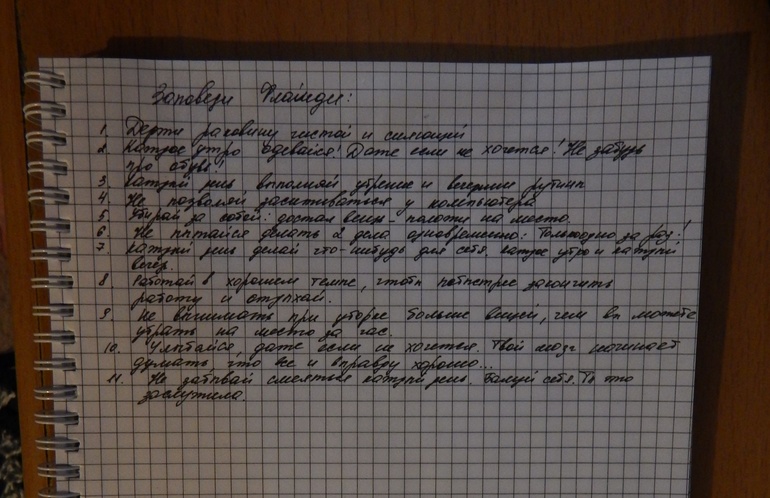 Заповеди Флайледи:
1. Держи раковину чистой и сияющей
2. Каждое утро одевайся! Даже если не хочется! Не забудь
про обувь!
3. Каждый день выполняй утренние и вечерние рутины
4. Не позволяй засиживаться у компьютера
5. Убирай за собой: достал вещь - положи на место.
6. Не пытайся делать 2 дела одновременно: Только одно за раз!
7. Каждый день делай что-нибудь для себя. Каждое утро и каждый
вечер.
8. Работай в хорошем темпе, чтобы побыстрее закончить
работу и отдыхай.
9. Не вынимать при уборке больше вещей, чем вы можете
убрать на место за час.
10. Улыбайся, даже если не хочется. Твой мозг начинает
думать, что все и вправду хорошо...
11. Не забывай смеяться каждый день. Балуй себя. Ты это
заслужила.